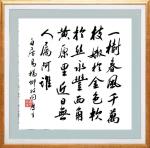 一樹春風千萬
枝嫩於金色軟
於丝永豐西角
荒園里盡日無
人屬阿誰
白居易楊柳枝詞